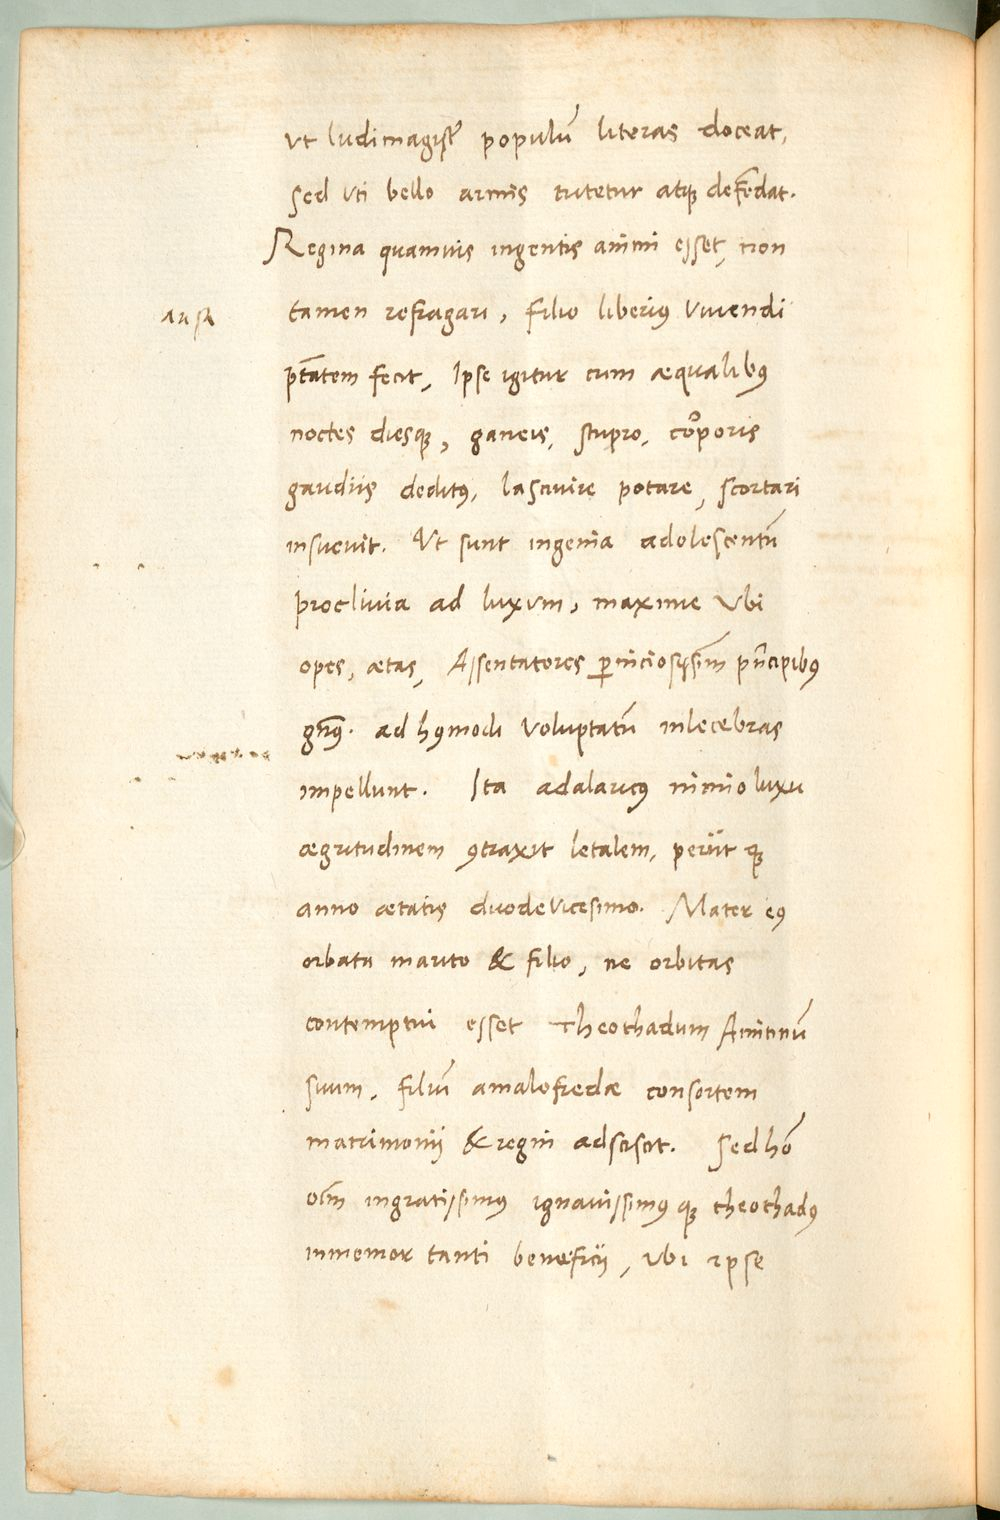 ut ludimagistꝰ populū literas doceat,
sed uti bello armis tutetur atqꝫ defēdat.
Regina quamuis ingentis animi esset, non
tamen refragari, filio liberius viuendi
ptātem fecit, Ipse igitur cum æqualibꝰ
noctes diesqꝫ, ganeis, stupro, corporis
gaudiis deditꝰ, lasciuire potare, scortari
insueuit. Ut sunt ingenia adolescentū
procliuia ad luxum, maxime ubi
opes, ætas, Assentatores ꝑniciosissim̄ pn̄cipibꝰ
gn̄ꝰ. ad hꝰmodi voluptatū inlecebras
impellunt. Ita adalaricꝰ nimio luxu
ægritudinem ꝯtraxit letalem, periit qꝫ
anno ætatis duodevicesimo. Mater eiꝰ
orbata marito & filio, ne orbitas
contemptui esset Theothadum Amitinū
suum, filiū amalofredæ consortem
matrimonij & regni adsciscit. Sed hō
oīm ingratissimꝰ ignauissimꝰ qꝫ theothadꝰ
inmemor tanti beneficij, ubi ipse